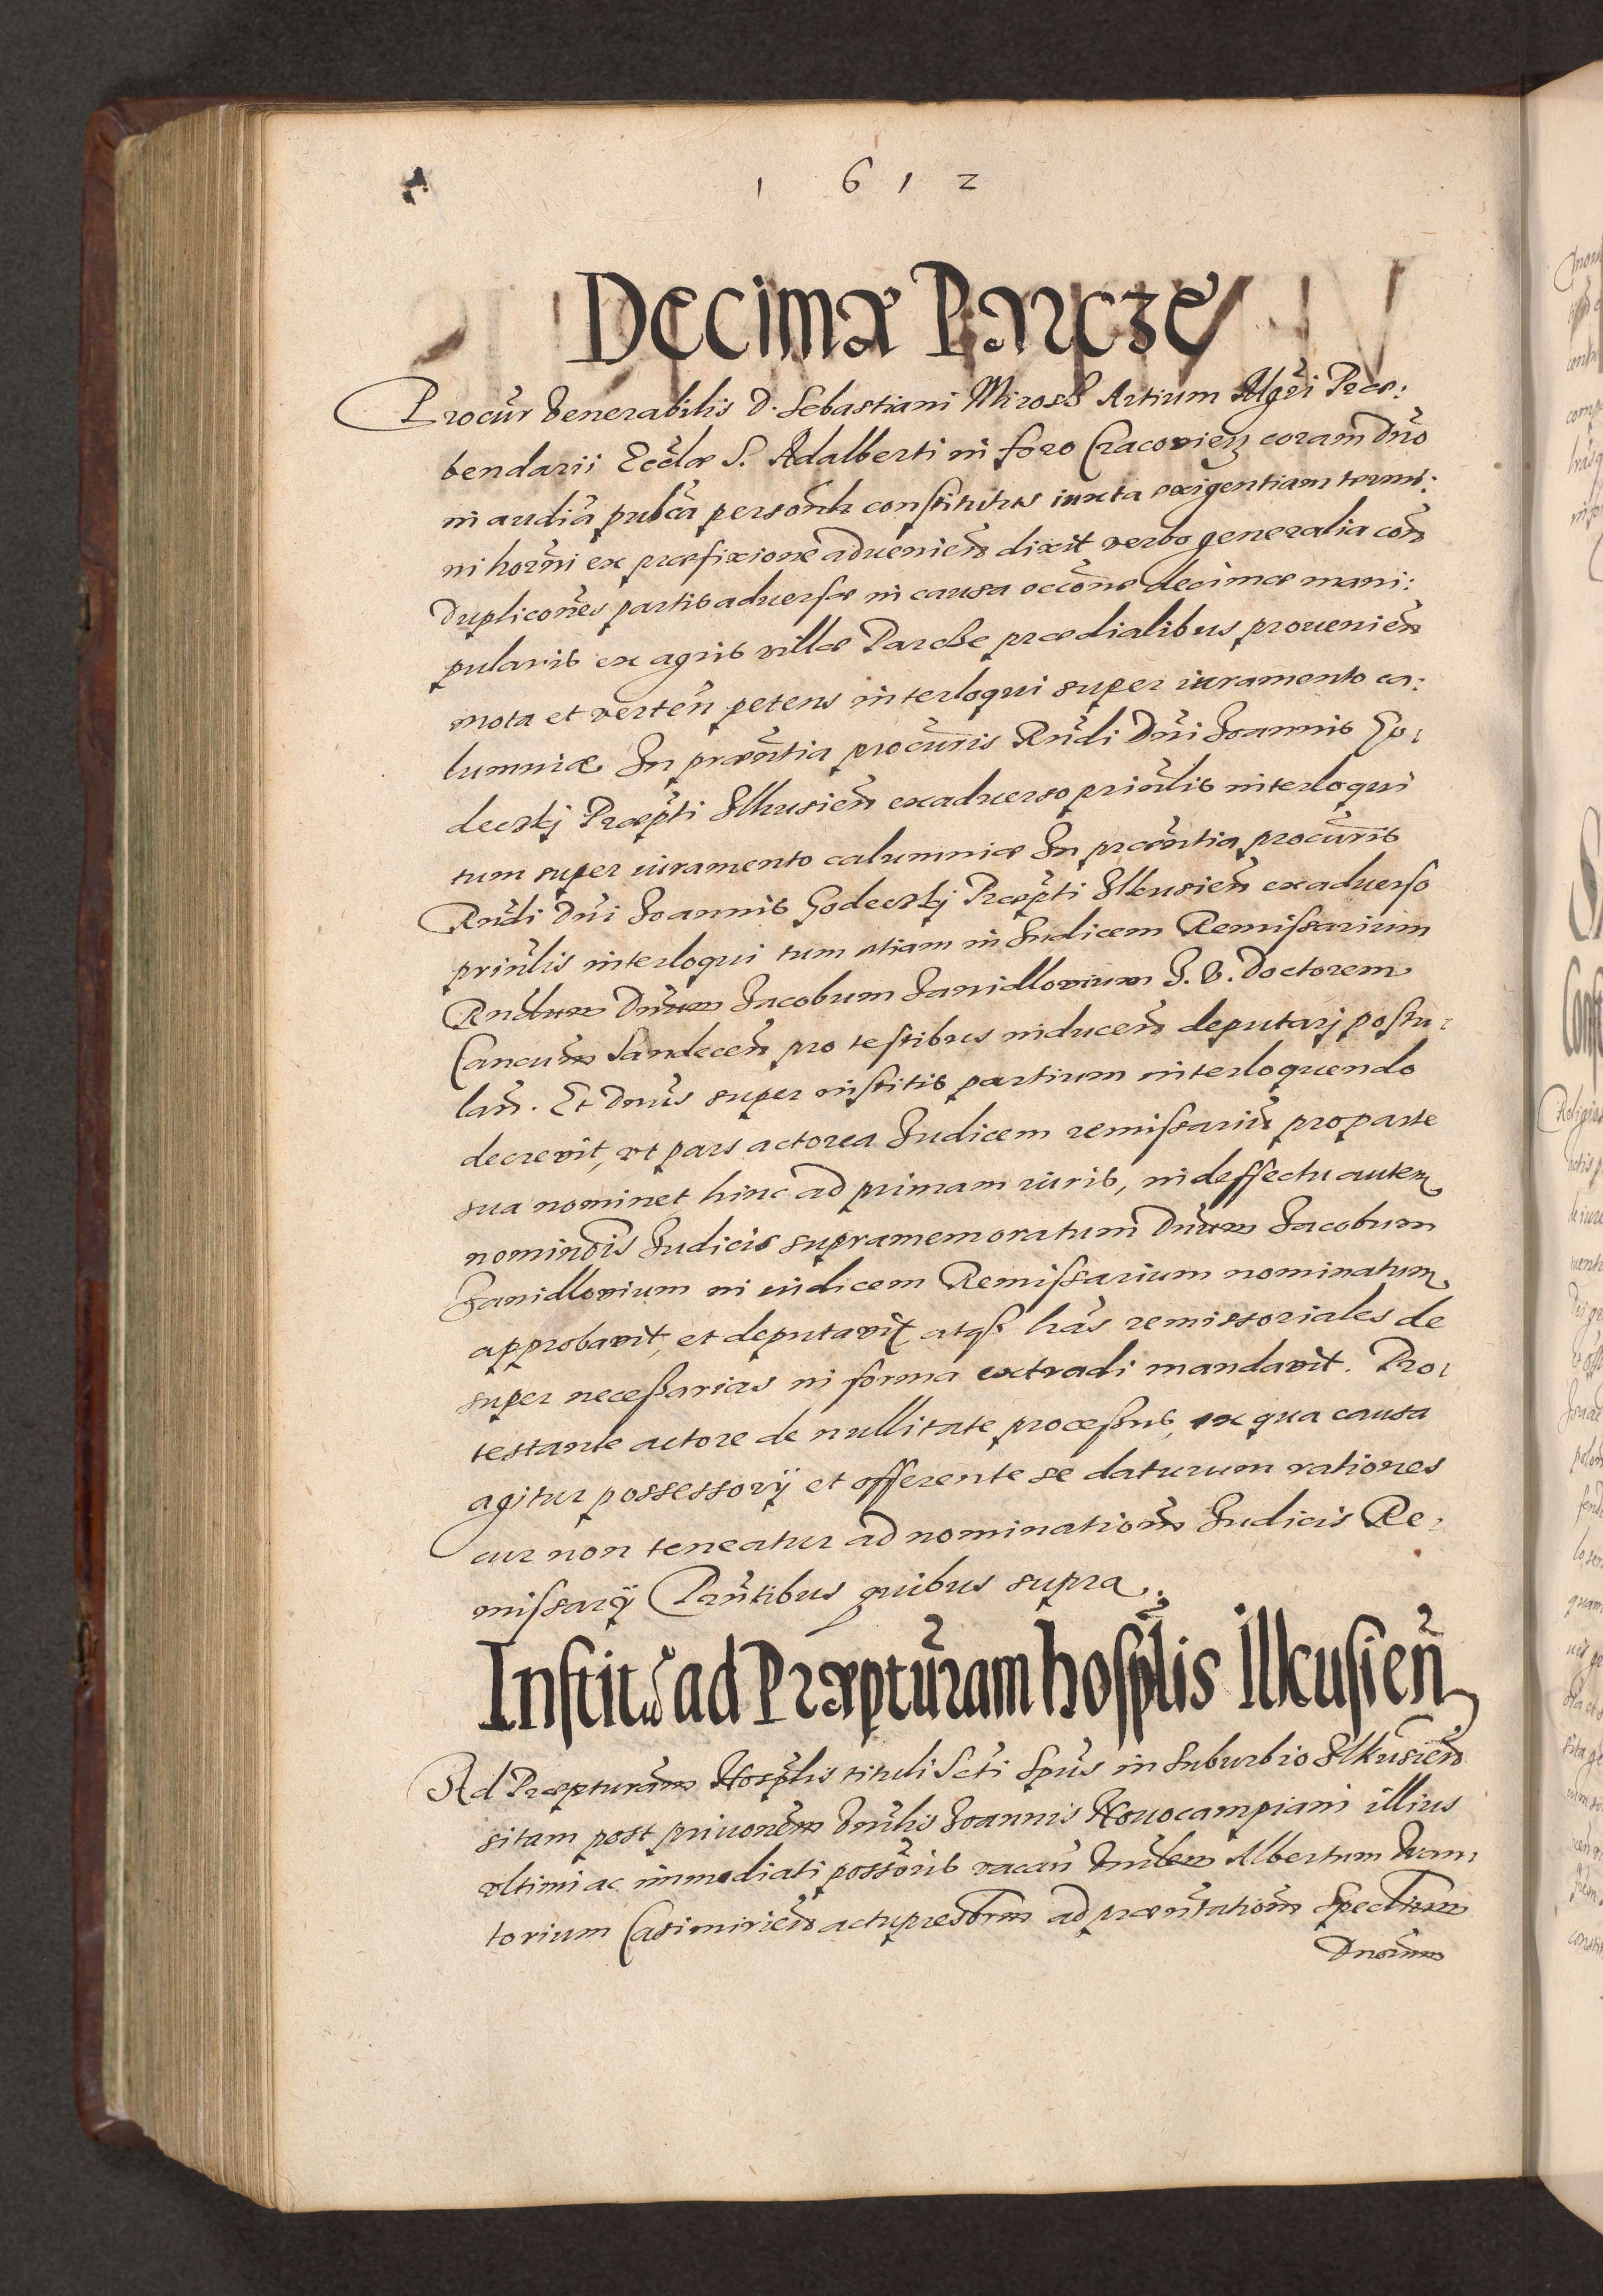 1 6 1 2
Decimæ Parcze
Procūr Venerabilis D. Sebastiani Mirosz Artium Mgrī Præ:
bendarii Eccl̃æ S. Adalberti in foro Cracovien̄ coram Dn̄o
in audiā publ̃ca person̄lr constitutus iuxta exigentiam termi:
ni hodr̄ni ex præfixione adveniēn dixit verbo generalia con̄
Duplicōnes partis adversæ in causa occōne decimæ mani:
pularis ex agris villæ Parcze prædialibus proveniēn
mota et vertēn petens interloqui super iuramento ca:
lumniæ In præn̄tia procūris Rn̄di Dn̄i Joannis Go:
deczkj Præpt̄i Ilkusiēn exadverso prin̄lis interloqui
tum super iuramento calumniæ In præn̄tia procūris
Rn̄di Dn̄i Joannis Godeczkj Præpt̄i Ilkusiēn exadverso
prin̄lis interloqui tum etiam in Judicem Remissarium
Rn̄dum Dn̄um Jacobum Janidlovium J. V. Doctorem
Cancūm Sandecēn pro testibus inducēn deputarj postu:
lan̄. Et Dn̄us super institis partium interloquendo
decrevit, ut pars actorea Judicem remissariū pro parte
sua nominet hinc ad primam iuris, in deffectu autem
nominōis Judicis supramemoratum Dn̄um Jacobum
Janidlovium in iudicem Remissarium nominatum
approbavit, et deputavit, atqȝ lr̄as remissoriales de
super necessarias in forma extradi mandavit. Pro:
testante actore de nullitate processus, ex qua causa
agitur possessorÿ et offerente se daturum rationes
cur non teneatur ad nominationē Judicis Re:
missarÿ Prn̄tibus quibus supra.
Institō ad Præptūram hosp̄lis Ilkusien̄
Ad Præpturam Hosp̄lis tituli Sctī Sp̄us in Suburbio Ilkusiēn
sitam post privōnem Dn̄lis Joannis Novocampiani illius
ultimi ac immediati possōris vacan̄ Dn̄lem Albertum Wan:
torium Casimiriēn actu presb̄rm ad præn̄tationē Spect̄lium
Dnōrum